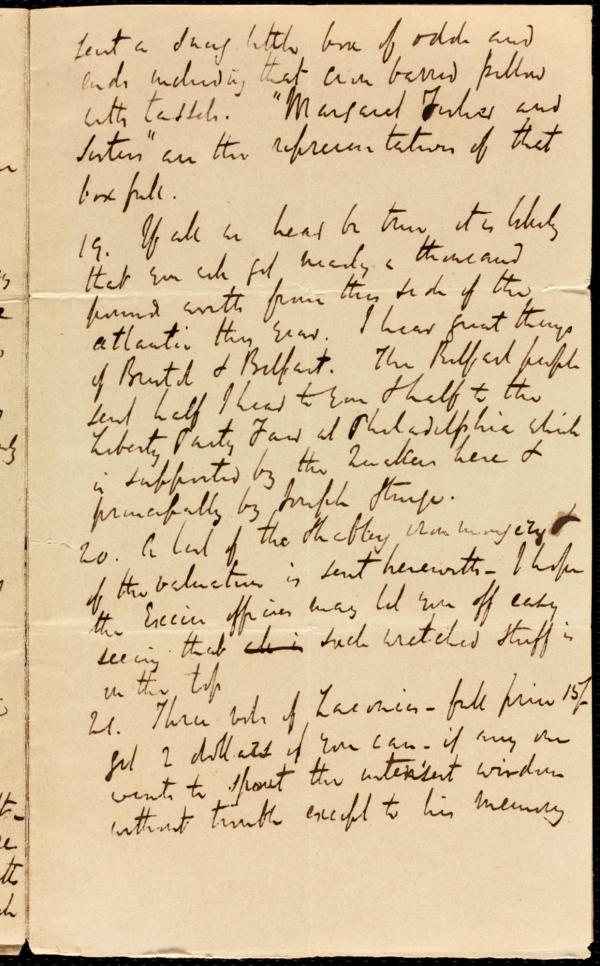 sent a snug little box of odds and
ends including that crow barred pillow
with tassels. "Margaret Fisher and
Sisters" are the representatives of that
box full.
19. If all we hear be true, it is likely
that you will get nearly a thousand
pounds worth from this side of the
atlantic this year. I hear great things
of Bristol & Belfast. The Belfast people
sent half I hear to you & half to the
Liberty Party Fair at Philadelphia which
is supported by the Quakers here &
principally by Joseph Sturge.
20. A list of the Shabbey ironmongery &
of the valuation is sent herewith - I hope
the Excise officers may let you off easy
seeing that such wretched stuff is
in the top
21. Three vols of Laconics - full price 15/-
get 2 dollars if you can - if any one
wants to spout the wisdom
without trouble except to his memory